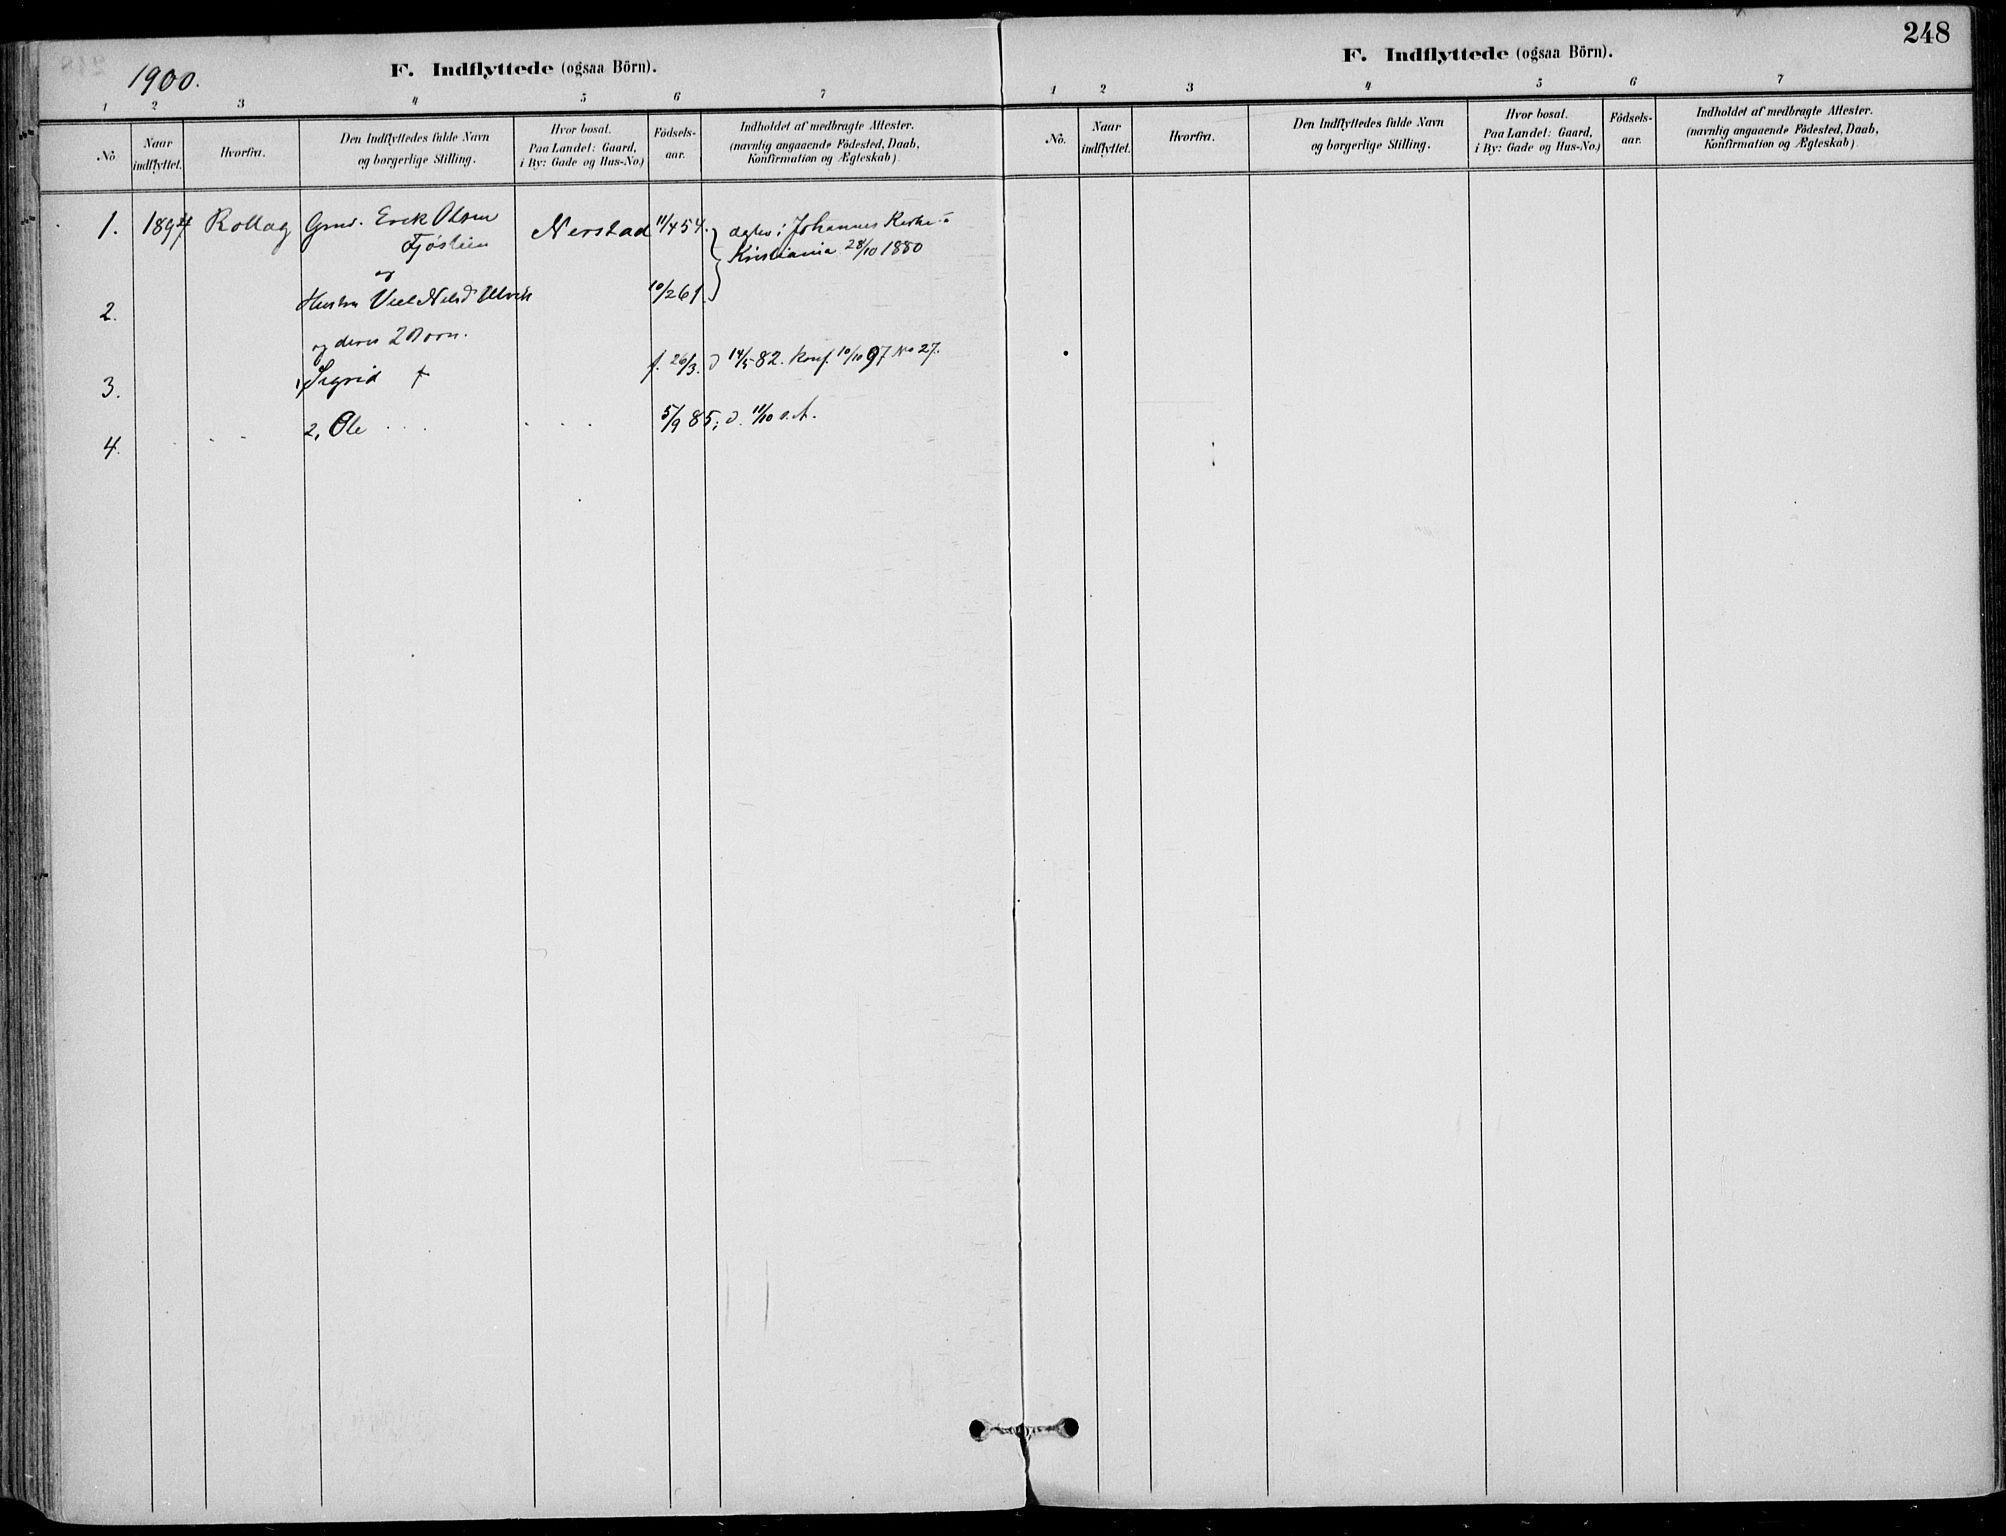 1900.
F. Indflyttede (ogsaa Börn).
1 2 3 4 5 6 7
No
Naar indflyttet.
Hvorfra.
Den Indflyttedes fulde Navn
og borgerlige Stilling.
Hvor bosat.
Paa Landet: Gaard,
i By: Gade og Hus-No.)
Födsels-
aar.
Indholdet af medbragte Attester.
(navnlig angaaende Födested, Daab,
Konfirmation og Ægteskab)
1. 1897 Rollag Grd. Erik Olsen Nerstad 11/4 54. ægtev. i Johannes Kirke i
Fjöstein Kristiania 28/10 1880
og
2. Hustru Nilsd 10/2 61.
og deres 2 Børn.
3. 1, Sigrid f. 26/3. d 14/5 82. konf. 10/10 97 No 27.
4. 2, Ole 5/9 85; d. 11/10 s. A.
248
F. Indflyttede (ogsaa Börn).
1 2 3 4 5 6 7
No.
Naar
indflyttet.
Hvorfra.
Den Indflyttedes fulde Navn
og borgerlige Stilling.
Hvor bosat.
Paa Landet: Gaard,
i By: Gade og Hus-No.)
Födsels-
aar.
Indholdet af medbragte Attester.
(navnlig angaaende Födested, Daab,
Konfirmation og Ægteskab)